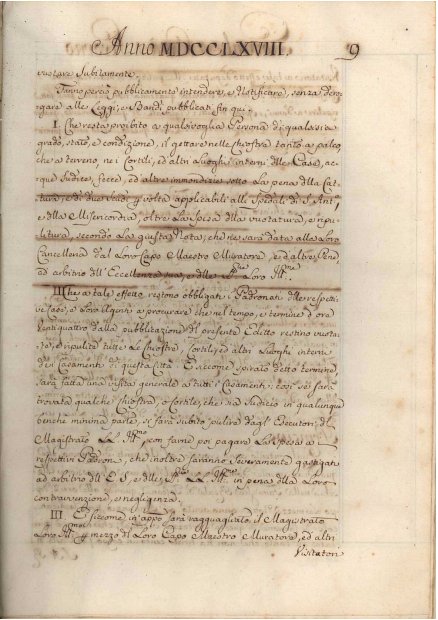 Anno MDCCLXVIII 9
vuotare Subitamente.
Fanno perciò pubblicamente intendere, e Notificare, senza dero-
gare alle Leggi, e Bandi pubblicati fin qui.
I Che resta proibito a qualsivoglia Persona di qualsisia
grado, stato, e condizione, il gettare nelle chiostre tanto a palco,
che a terreno, nei Cortili, ed altri Luoghi interni delle Case, ac-
que sudice, fecce, ed altre immondizie sotto La pena della Cat-
tura, e di due Scudi volta applicabili alli Spedali di S. Ant.
e della Misericordia, oltre La spesa della vuotatura, e ripu-
litura, secondo La giusta Nota, che ne sarà data alla Loro
Cancelleria dal Loro Capo Maestro Muratore, e d'altre Pene,
ad arbitrio dell' Eccellenza sua, e delle Loro
II Che a tale effetto restino obbligati i Padronati delle respetti-
ve Case, e Loro Agenti a procurare che nel tempo, e termine d'ore
Ventiquattro dalla pubblicazione del presente Editto restino vuota-
te, e ripulite tutte Le chiostre, Cortili, ed altri Luoghi interni
dei Casamenti di questa Città. E siccome spirato detto termine,
sarà fatta una visita generale a tutti i Casamenti; così se sarà
trovata qualche chiostra, o Cortile, che sia Sudicio in qualunque
benche minima parte, si farà subito pulire dagl' Esecutori del
Magistrato LL. con farne poi pagare La spesa a i
respettivi Padroni, che inoltre saranno Severamente gastigati
ad arbitrio dell' E. S. e delle LL. in pena della Loro
contravvenzione, e negligenza.
III E siccome in appo sarà ragguagliato il Magistrato
Loro mezzo di Loro Capo Maestro Muratore, ed altri
Visitatori